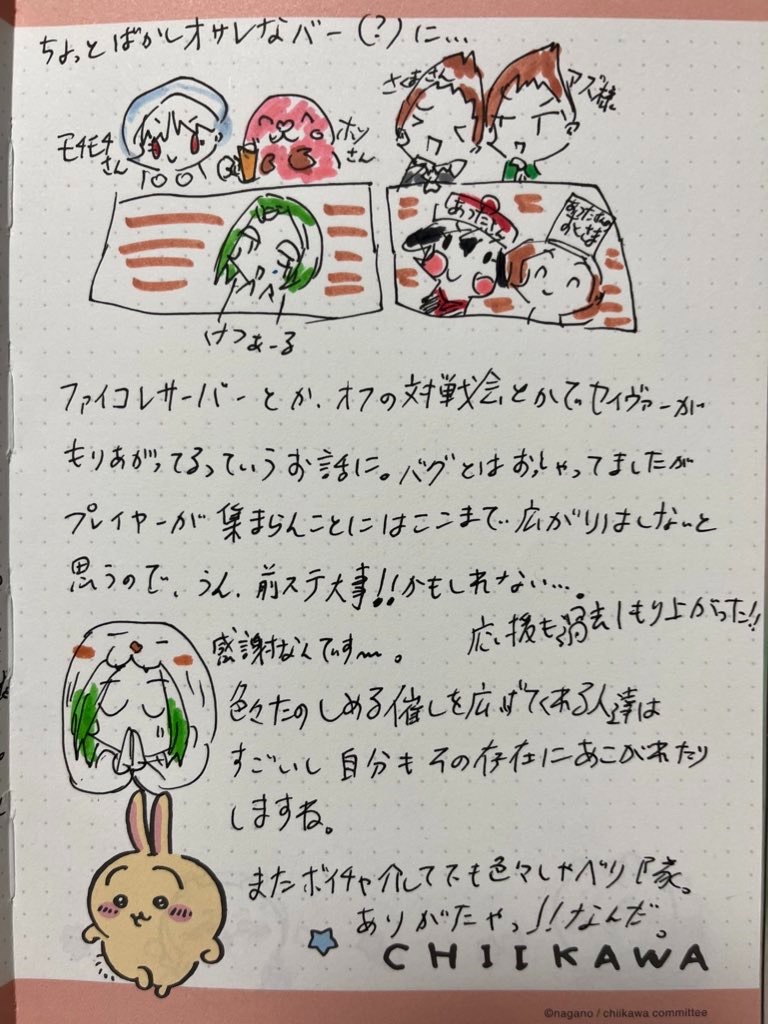 ちょっとばかしオサレなバー(?)に…
モチモチさん
ホソさん
さくあさん
アズ様
あつたさん
けつあーる
ファイコレサーバーとか、オフの対戦会とかでセイヴァーが
もりあがってるっていうお話に。バグとはおっしゃってましたが
プレイヤーが集まらんことにはここまで広がりはしないと
思うので、うん、前ステ大事!!かもしれない…。
応援も過去1もり上がった!!
感謝なんですー。
色々たのしめる催しを広げてくれる人達は
すごいし自分もその存在にあこがれたり
しますね。
またボイチャ介してでも色々しゃべり倒
ありがたやっ!!なんだ。
CHIIKAWA
©nagano / chiikawa committee